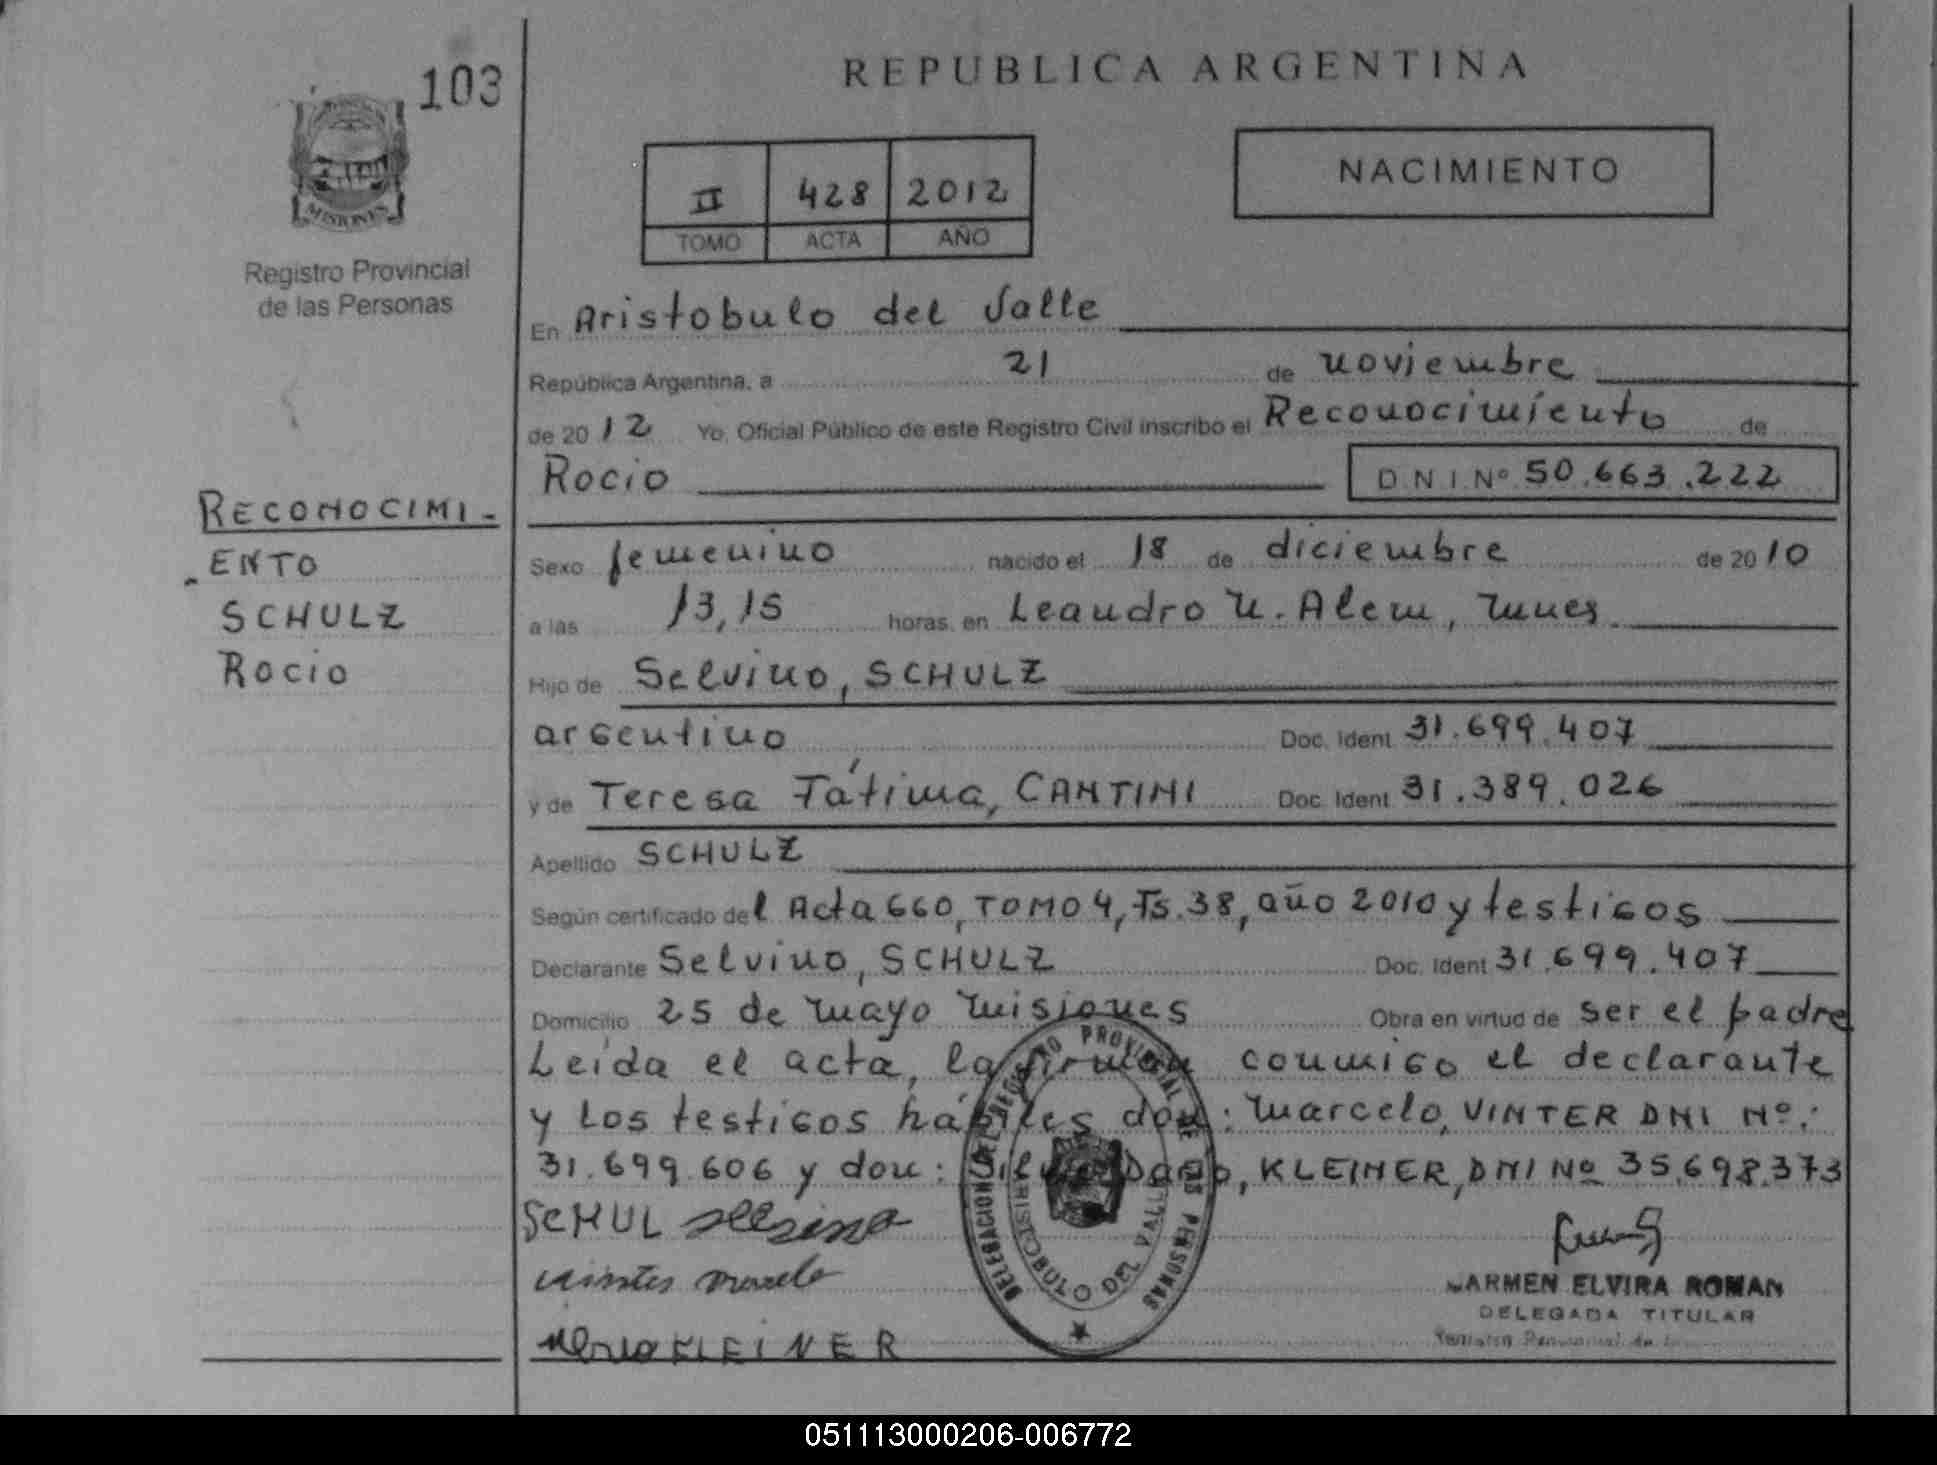 103
REPUBLICA ARGENTINA
NACIMIENTO
II 428 2012
TOMO ACTA AÑO
MISIONES
Registro Provincial
de las Personas
En Aristobulo del Valle
República Argentina, a 21 de noviembre
de 2012 Yo, Oficial Público de este Registro Civil inscribo el Reconocimiento de
Rocio D.N.I. Nº 50.663.222
RECONOCIMI-
ENTO
SCHULZ
Rocio
Sexo femenino nacido el 18 de diciembre de 2010
a las 13,15 horas, en Leandro N. Alem, Mnes.
Hijo de Selvino, SCHULZ
argentino Doc. Ident 31.699.407
y de Teresa Fátima, CANTINI Doc. Ident 31.389.026
Apellido SCHULZ
Según certificado del Acta 660, TOMO 4, Fs. 38, año 2010 y testigos
Declarante Selvino, SCHULZ Doc. Ident 31.699.407
Domicilio 25 de Mayo Misiones Obra en virtud de ser el padre
Leída el acta, la firman conmigo el declarante
y los testigos hábiles don: Marcelo, VINTER DNI Nº:
31.699.606 y don: Dario, KLEINER, DNI Nº 35.698.373
SCHUL
KLEINER
DELEGACION DEL REGISTRO PROVINCIAL DE LAS PERSONAS
ARISTOBULO DEL VALLE
CARMEN ELVIRA ROMAN
DELEGADA TITULAR
051113000206-006772